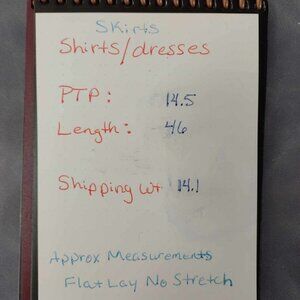 Skirts
Shirts/dresses
PTP: 14.5
Length: 46
Shipping wt 14.1
Approx Measurements
Flat Lay No Stretch